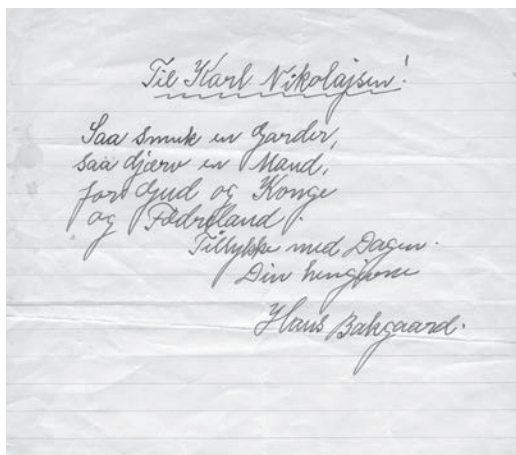 Til Karl Nikolajsen!
Saa smuk en Garder,
saa djærv en Mand,
for Gud og Konge
og Fædreland.
Tillykke med Dagen.
Din hengivne
Hans Bakgaard.